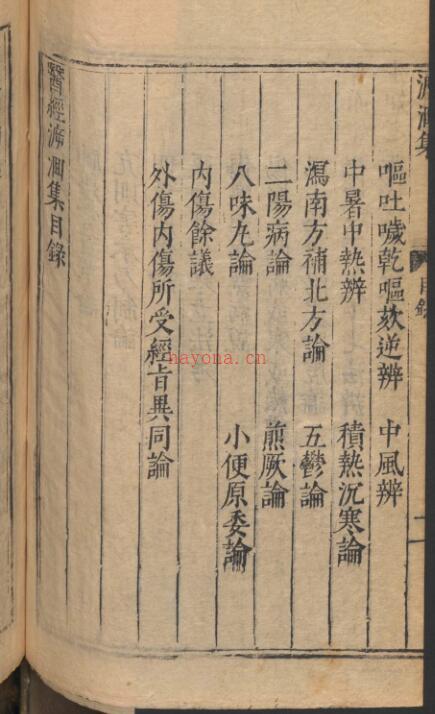 溯洄集
目錄
二
嘔吐噦乾嘔欬逆辨　中風辨
中暑中熱辨　積熱沉寒論
瀉南方補北方論　五鬱論
二陽病論　煎厥論
八味丸論　小便原委論
內傷餘議
外傷內傷所受經旨異同論
醫經溯洄集目錄
hayona.cn